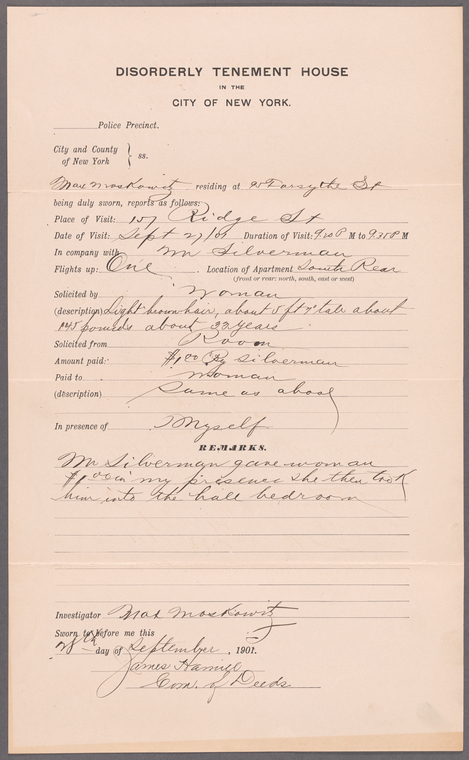 DISORDERLY TENEMENT HOUSE
IN THE
CITY OF NEW YORK.
Police Precinct.
City and County
of New York } ss.
Max Moskowitz residing at 95 Forsythe St
being duly sworn, reports as follows:
Place of Visit: 157 Ridge St
Date of Visit: Sept 27/01 Duration of Visit: 9:20 P M to 9:35 P M
In company with Mr Silverman
Flights up: One Location of Apartment South Rear
(front or rear: north, south, east or west)
Solicited by Woman
(description) Light brown hair, about 5 ft 7" tall about
145 pounds about 22 years
Solicited from Room
Amount paid: $1.00 By Silverman
Paid to Woman
(description) Same as above
In presence of Myself
REMARKS.
Mr Silverman gave woman
$1.00 in my presence she then took
him into the hall bedroom
Investigator Max Moskowitz
Sworn to before me this
28th day of September, 1901.
James Hamill
Com. of Deeds